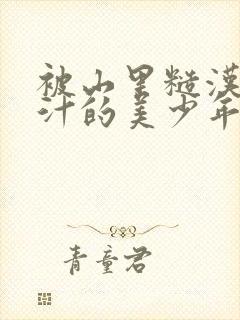 被山里糙漢
汁的美少年
青童君